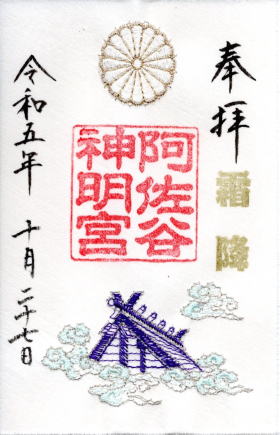 奉拝
霜降
阿佐谷
神明宮
令和五年 十月二十七日